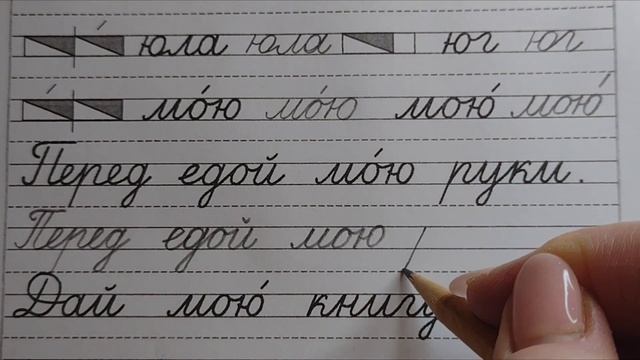 юла юла юг юг
мо́ю мо́ю мою́ мою́
Перед едой мо́ю руки.
Перед едой мою
Дай мою́ книгу